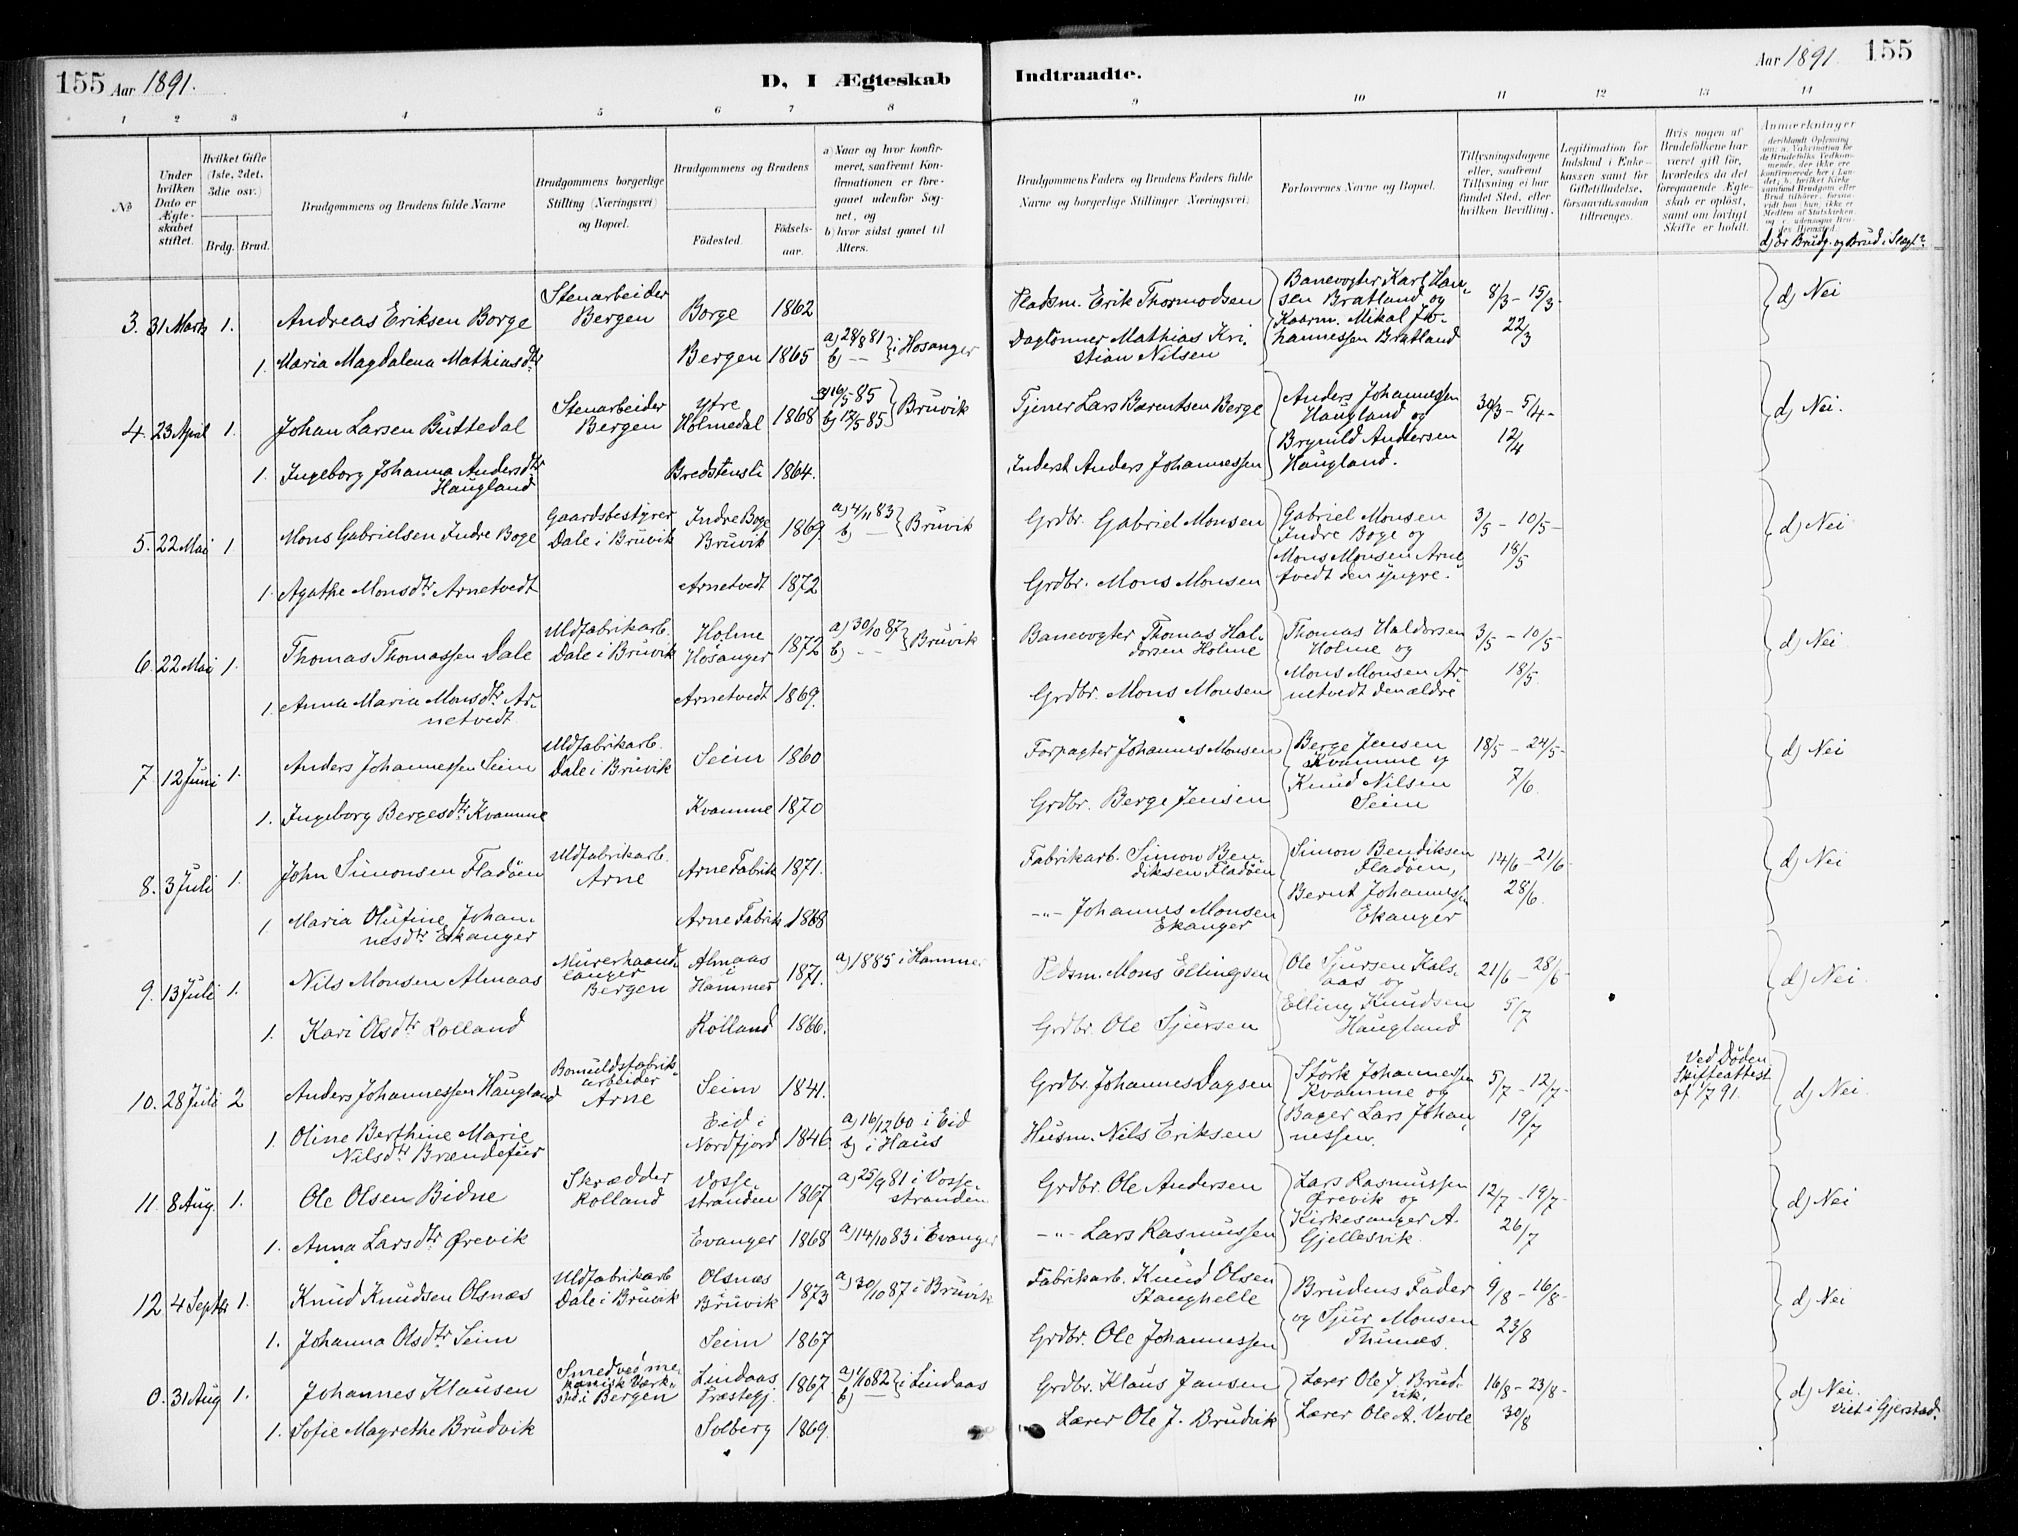 155 Aar 1891.
D, I Ægteskab
Indtraadte.
Aar 1891. 155
1 2 3 4 5 6 7 8 9 10 11 12 13 14
No
Under hvilken Dato er Ægteskabet stiftet.
Hvilket Gifte (1ste, 2det, 3die osv.)
Brdg. Brud.
Brudgommens og Brudens fulde Navne
Brudgommens borgerlige Stilling (Næringsvei) og Bopæl.
Brudgommens og Brudens
Födested.
Födselsaar.
a) Naar og hvor konfirmeret, saafremt Konfirmationen er foregaaet udenfor Sognet, og
b) hvor sidst gaaet til Alters.
Brudgommens Faders og Brudens Faders fulde Navne og borgerlige Stillinger (Næringsvei)
Forlovernes Navne og Bopæl.
Tillysningsdagene eller, saafremt Tillysning ei har fundet Sted, efter hvilken Bevilling.
Legitimation for Indskud i Enkekassen samt for Giftetilladelse, forsaavidt saadan tiltrænges.
Hvis nogen af Brudefolkene har været gift før, hvorledes da det foregaaende Ægteskab er opløst, samt om lovligt Skifte er holdt.
Anmærkninger
d) Er Brudg. og Brud i Slægt?
3. 31 Marts 1. Andreas Eriksen Borge Stenarbeider Bergen Borge 1862 Pladsm. Erik Thormodsen Banevogter Karl Hansen Bratland og 8/3 - 15/3 - d) Nei
1. Maria Magdalena Mathiasdtr Bergen 1865 a) 28/8 81 b) -- i Hosanger Daglönner Mathias Kristian Nilsen Kaarm. Mikal Johannessen Bratland 22/3
4. 23 April 1. Johan Larsen Buttedal Stenarbeider Bergen Ytre Holmedal 1868 a) 16/5 85 b) 17/5 85 Bruvik Tjener Lars Barentsen Berge Anders Johannessen Haugland og 30/3 - 5/4 - d) Nei.
1. Ingeborg Johanna Andersdtr Haugland Bredstensli 1864. Inderst Anders Johannessen Brynild Andersen Haugland. 12/4
5. 22 Mai 1 Mons Gabrielsen Indre Boge Gaardsbestyrer Dale i Bruvik Indre Boge Bruvik 1869. a) 4/11 83 b) -- Bruvik Grdbr. Gabriel Monsen Gabriel Monsen Indre Boge og 3/5 - 10/5 - d) Nei
1. Agathe Monsdtr Arnetvedt Arnetvedt 1872 Grdbr. Mons Monsen Mons Monsen Arnetvedt den yngre. 18/5
6. 22 Mai 1. Thomas Thomassen Dale Uldfabrikarb. Dale i Bruvik Holme Hosanger 1872 a) 30/10 87 b) -- Bruvik Banevogter Thomas Haldorsen Holme Thomas Haldorsen Holme og 3/5 - 10/5 - d) Nei
1. Anna Maria Monsdtr Arnetvedt Arnetvedt 1869. Grdbr. Mons Monsen Mons Monsen Arnetvedt den ældre 18/5.
7 12 Juni 1. Anders Johannessen Seim Uldfabrikarb. Dale i Bruvik Seim 1860 Forpagter Johannes Monsen Berge Jensen Kvamme og 18/5 - 24/5 - d) Nei
1. Ingeborg Bergesdtr Kvamme Kvamme 1870 Grdbr. Berge Jensen Knud Nilsen Seim 7/6.
8. 3 Juli 1. John Simonsen Fladöen Uldfabrikarb. Arne Arne Fabrik 1871. Fabrikarb. Simon Bendiksen Fladöen Simon Bendiksen Fladöen, 14/6 - 21/6 - d) Nei
1 Maria Olufine Johannesdtr Ekanger Arne Fabrik 1868 -"- Johannes Monsen Ekanger Bernt Johannessen Ekanger 28/6.
9. 13 Juli 1. Nils Monsen Almaas Murerhaandlanger Bergen Almaas i Hammer 1871. a) 1885 i Hammer Pldsm. Mons Ellingsen Ole Sjursen Kalsaas og 21/6 - 28/6 - d) Nei.
1. Kari Olsdtr Rolland Rolland 1866. Grdbr. Ole Sjursen Elling Knudsen Haugland 5/7
10. 28 Juli 2 Anders Johannessen Haugland Bomuldsfabrikarbeider Arne Seim 1841. Grdbr. Johannes Dagsen Störk Johannessen Kvamme og 5/7 - 12/7 - Ved Döden Skifteattest af 1/7 91. d) Nei.
1. Oline Berthine Marie Nilsdtr Brændefur Eid i Nordfjord 1846. a) 16/12 60 i Eid b) i Haus Husm. Nils Eriksen Bager Lars Johannessen. 19/7
11. 8 Aug. 1. Ole Olsen Bidne Skrædder Rolland Vossestranden 1867 a) 25/9 81 i Vossestranden Grdbr. Ole Andersen Lars Rasmussen Ørevik og 12/7 - 19/7 - d) Nei
1. Anna Larsdtr Ørevik Evanger 1868 a) 14/10 83 i Evanger -"- Lars Rasmussen Kirkesanger A. Gjellesvik. 26/7
12 4 Septbr 1. Knud Knudsen Olsnæs Uldfabrikarb. Dale i Bruvik Olsnæs Bruvik 1873 a) 30/10 87 i Bruvik Fabrikarb. Knud Olsen Stanghelle Brudens Fader 9/8 - 16/8 - d) Nei
1. Johanna Olsdtr Seim Seim 1867 Grdbr. Ole Johannessen og Sjur Monsen Thunes. 23/8
0. 31 Aug 1. Johannes Klausen Smed ved mekanisk Værksted i Bergen Lindaas Præstegj. 1867 a) 1/10 82 b) -- i Lindaas Grdbr. Klaus Jansen Lærer Ole J. Brudvik. 16/8 - 23/8 - d) Nei. Viet i Gjerstad.
1. Sofie Magrethe Brudvik Solberg 1869. Lærer Ole J. Brudvik Lærer Ole A. Vevle 30/8